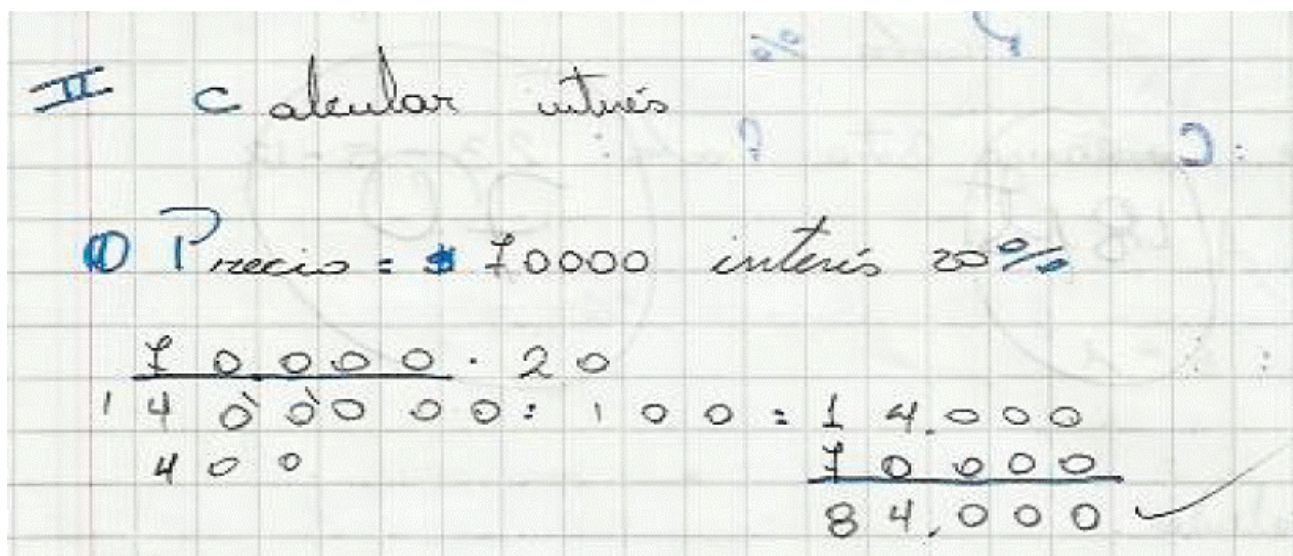 II Calcular interés
① Precio = $ 70000 interés 20%
70000 · 20
1400000 : 100 = 14.000
400 70000
84.000